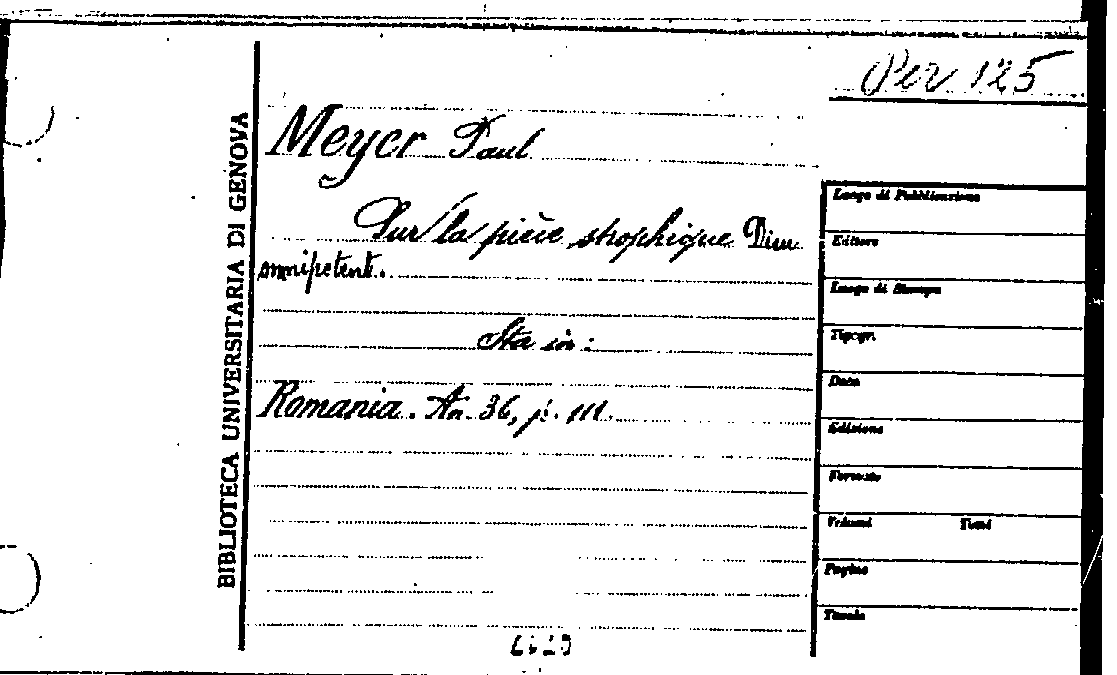 Per 125
BIBLIOTECA UNIVERSITARIA DI GENOVA
Meyer Paul
Sur la pièce strophique Dieu
omnipotent.
Sta in:
Romania. An. 36, p. 111.
Luogo di Pubblicazione
Editore
Luogo di Stampa
Tipogr.
Data
Edizione
Formato
Volumi Tomi
Pagine
Tavole